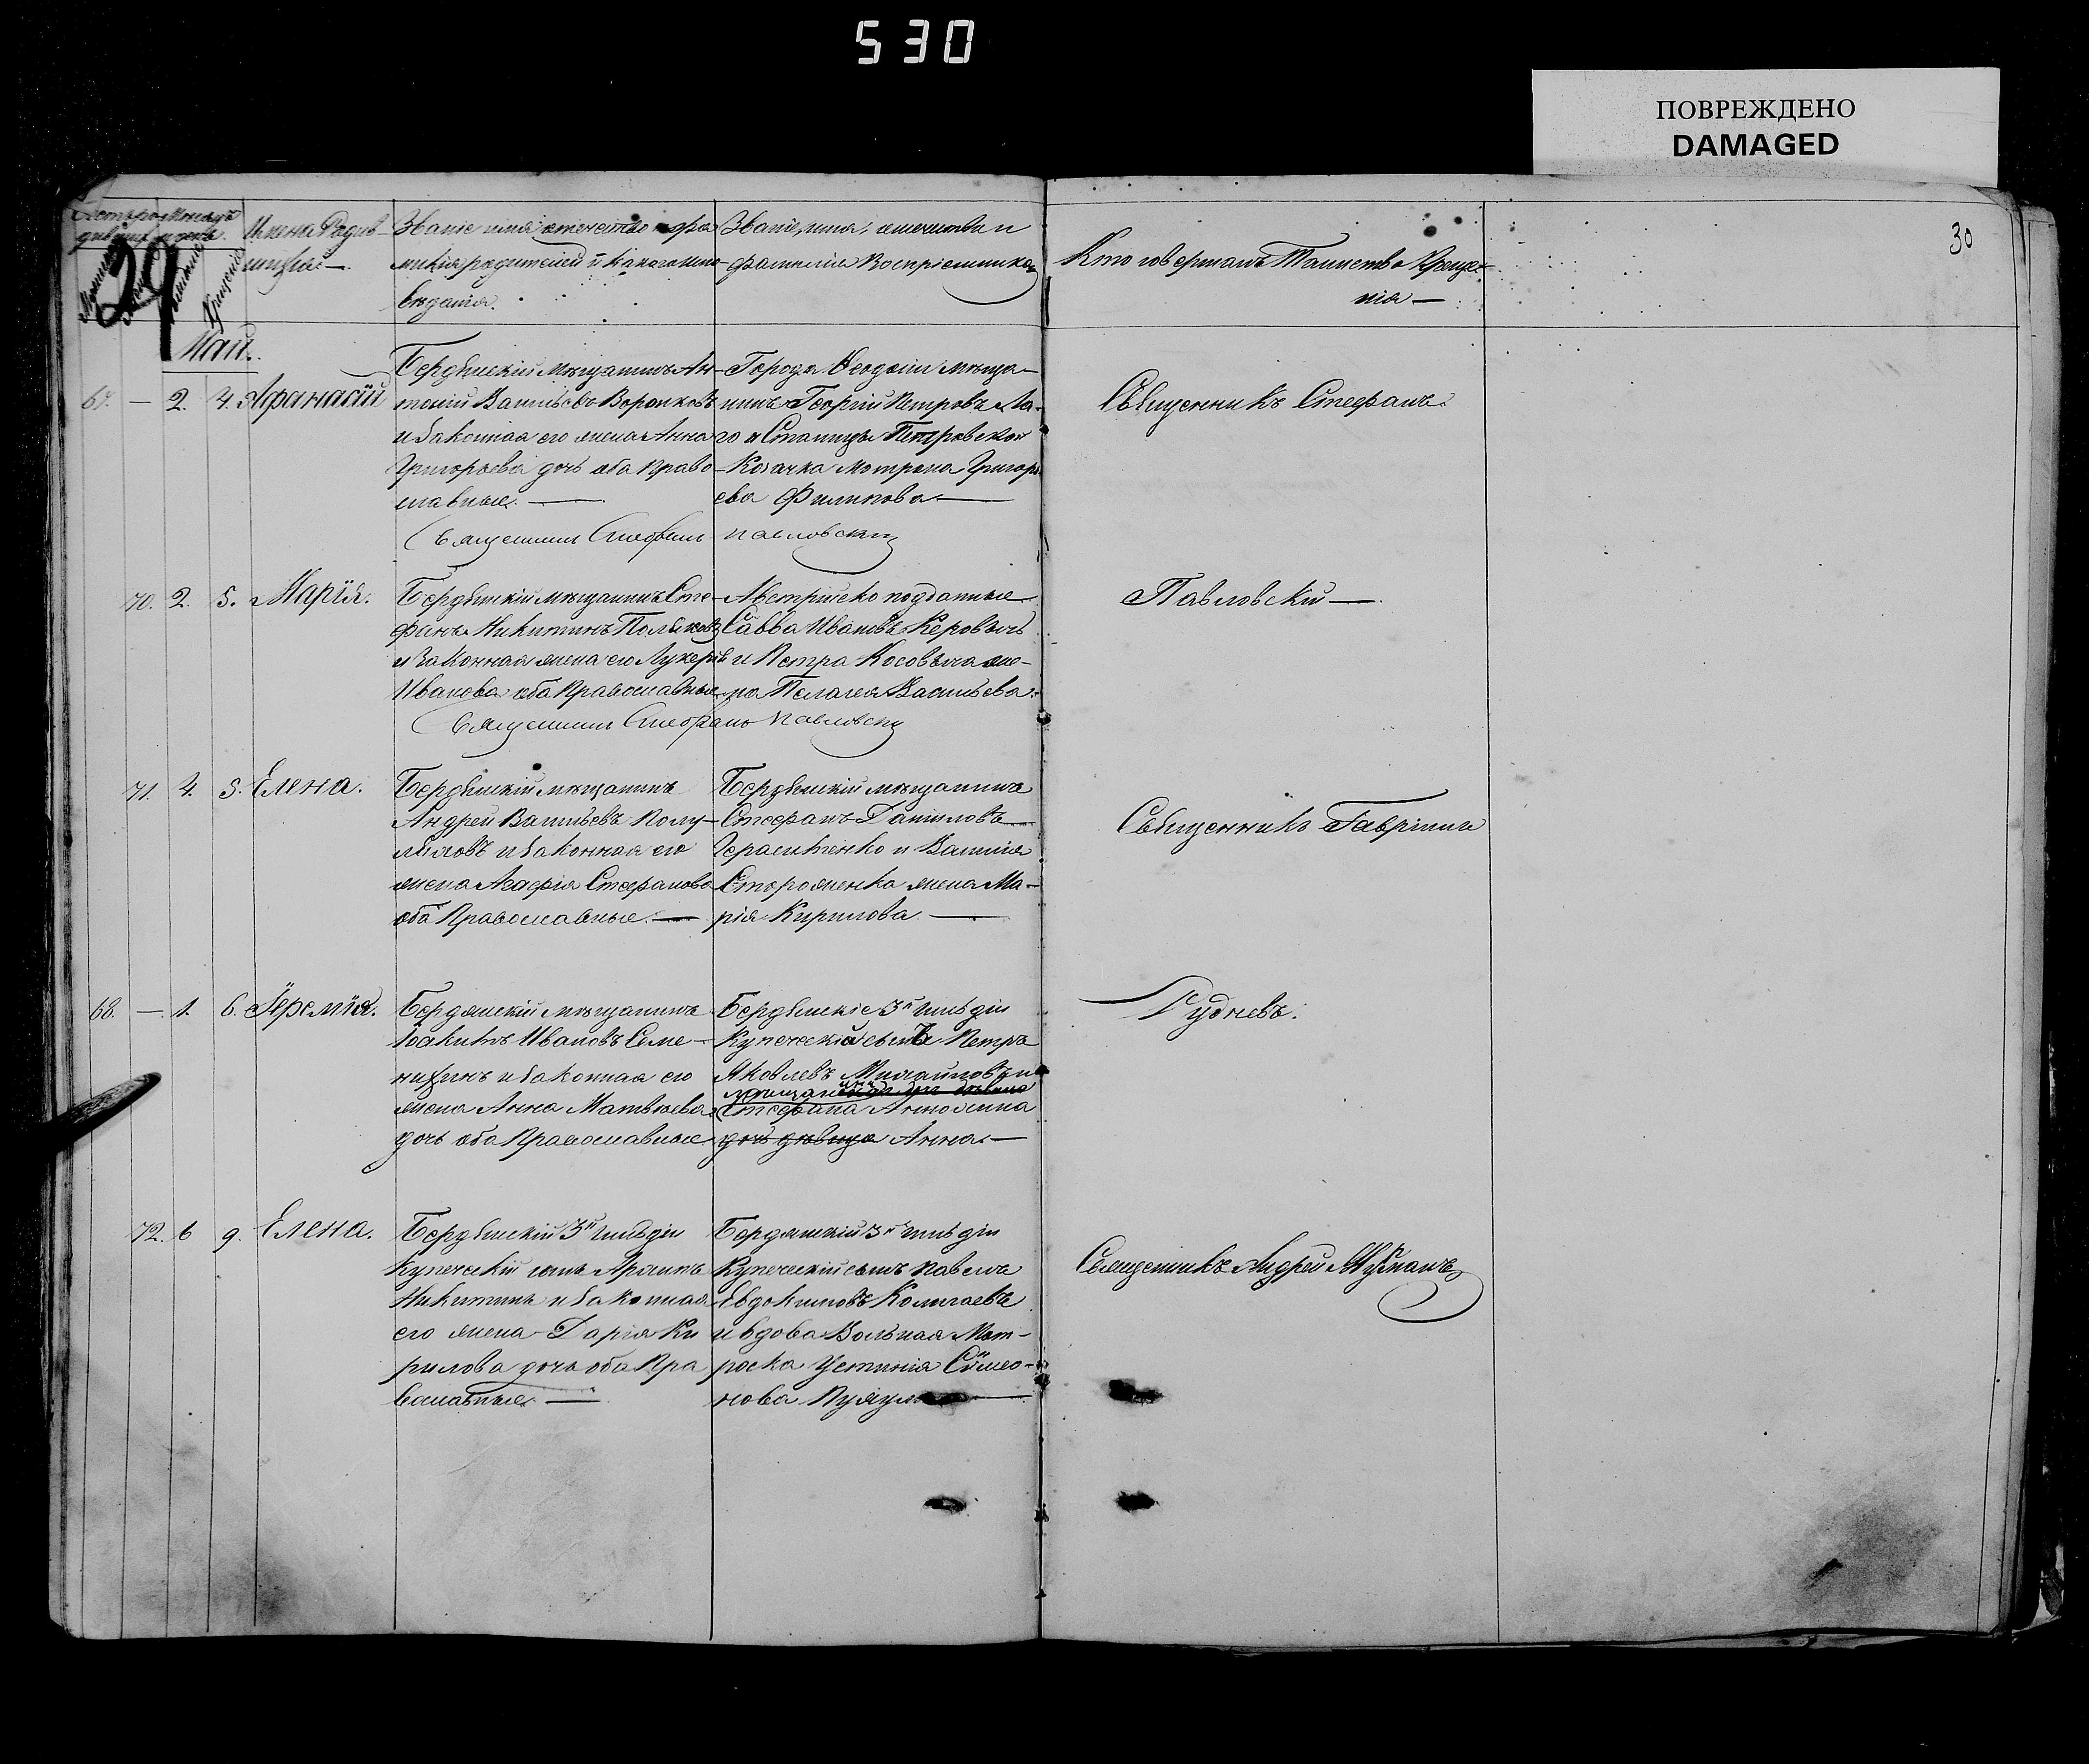 530
ПОВРЕЖДЕНО
DAMAGED
30
29
Имена Родив-
шихся.
Званіе имя отечество и фа
милія родителей и какого испо-
вѣданія.
Званіе, имя, отечество и
фамилія Воспріемниковъ
Кто совершалъ Таинство Креще-
нія —
Май.
67. — 2. 4. Афанасій
Бердянскій мѣщанинъ Ан-
тоній Васильевъ Воронковъ
и законная его жена Анна
Григорьева дочь оба Право-
славные. —
Города Ѳеодосіи мѣща-
нинъ Георгій Петровъ
и Станицы Петровской
Козачка Мотрона Григорь
ева Филипова —
Священникъ Стефанъ Павловскій
Священникъ Стефанъ
70. 2. 5. Марія.
Бердянскій мѣщанинъ Сте-
фанъ Никитинъ Поляковъ
и законная жена его Лукерія
Иванова оба Православные
Австрійско подданные
Савва Ивановъ Керовичъ
и Петра Косовича же-
на Пелагея Васильева.
Священникъ Стефанъ Павловскій
Павловскій —
71. 4. 5. Елена.
Бердянскій мѣщанинъ
Андрей Васильевъ Полу-
ляховъ и законная его
жена Агафія Стефанова
оба Православные. —
Бердянскій мѣщанинъ
Стефанъ Даніиловъ
Герасименко и Василія
Стороженка жена Ма-
рія Кирилова —
Священникъ Гавріилъ
68. — 1. 6. Іеремія.
Бердянскій мѣщанинъ
Іоакимъ Ивановъ Семе-
нихинъ и законная его
жена Анна Матвѣева
дочь оба Православные
Бердянскіе 3й гильдіи
Купеческій сынъ Петръ
Яковлевъ Михайловъ и
Стефана Антонина
дочь дѣвица Анна —
Рудневъ.
72. 6 9. Елена.
Бердянскій 3й гильдіи
Купеческій сынъ Архипъ
Никитинъ и законная
его жена Дарія Ки
рилова дочь оба Пра
вославные —
Бердянскій 3й гильдіи
Купеческій сынъ Павелъ
Евдокимовъ Колпаевъ
и вдова Вольная Мат-
роска Устинія Симео-
нова
Священникъ Андрей